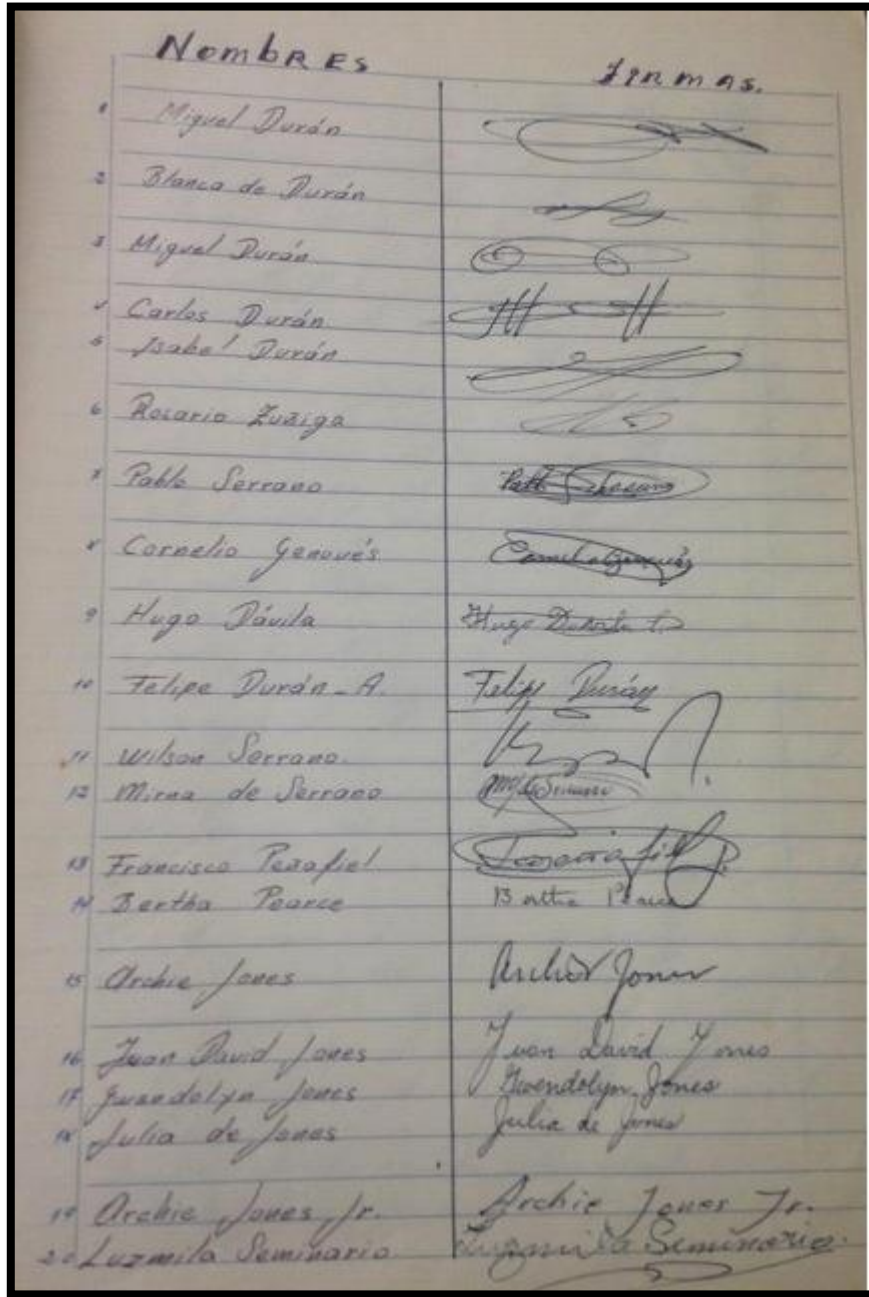 Nombres Firmas.
1 Miguel Durán
2 Blanca de Durán
3 Miguel Durán
4 Carlos Durán
5 Isabel Durán
6 Rosario Zuñiga
7 Pablo Serrano
8 Cornelio Genovés
9 Hugo Dávila Hugo
10 Felipe Durán - A. Felipe Durán
11 Wilson Serrano.
12 Mirna de Serrano
13 Francisco Peñafiel
14 Bertha Pearce
15 Archie Jones Archie Jones
16 Juan David Jones Juan David Jones
17 Gwendolyn Jones Gwendolyn Jones
18 Julia de Jones Julia de Jones
19 Archie Jones Jr. Archie Jones Jr.
20 Luzmila Seminario Luzmila Seminario